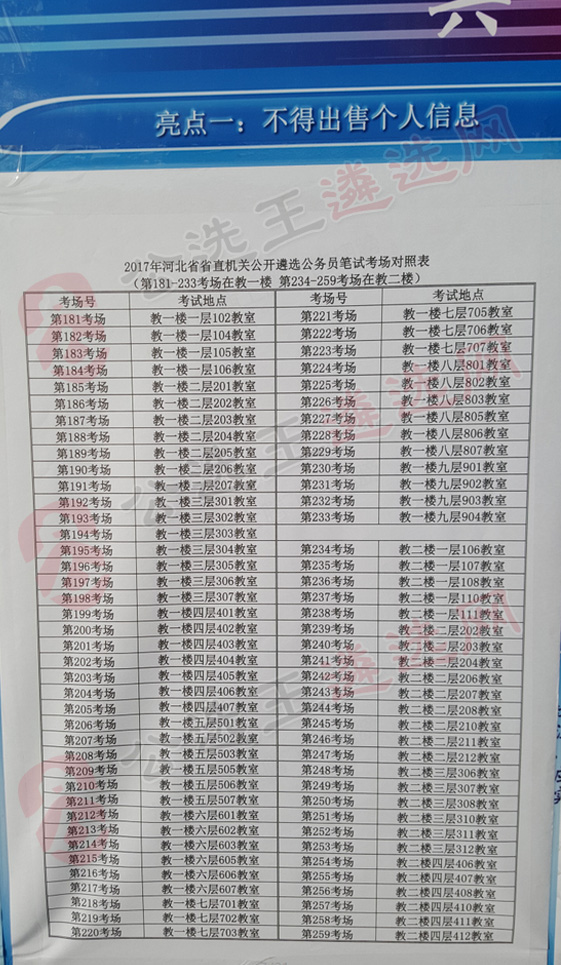 六
亮点一：不得出售个人信息
公选王遴选网
2017年河北省省直机关公开遴选公务员笔试考场对照表
（第181-233考场在教一楼 第234-259考场在教二楼）
考场号 考试地点 考场号 考试地点
第181考场 教一楼一层102教室 第221考场 教一楼七层705教室
第182考场 教一楼一层104教室 第222考场 教一楼七层706教室
第183考场 教一楼一层105教室 第223考场 教一楼七层707教室
第184考场 教一楼一层106教室 第224考场 教一楼八层801教室
第185考场 教一楼二层201教室 第225考场 教一楼八层802教室
第186考场 教一楼二层202教室 第226考场 教一楼八层803教室
第187考场 教一楼二层203教室 第227考场 教一楼八层805教室
第188考场 教一楼二层204教室 第228考场 教一楼八层806教室
第189考场 教一楼二层205教室 第229考场 教一楼八层807教室
第190考场 教一楼二层206教室 第230考场 教一楼九层901教室
第191考场 教一楼二层207教室 第231考场 教一楼九层902教室
第192考场 教一楼三层301教室 第232考场 教一楼九层903教室
第193考场 教一楼三层302教室 第233考场 教一楼九层904教室
第194考场 教一楼三层303教室
第195考场 教一楼三层304教室 第234考场 教二楼一层106教室
第196考场 教一楼三层305教室 第235考场 教二楼一层107教室
第197考场 教一楼三层306教室 第236考场 教二楼一层108教室
第198考场 教一楼三层307教室 第237考场 教二楼一层110教室
第199考场 教一楼四层401教室 第238考场 教二楼一层111教室
第200考场 教一楼四层402教室 第239考场 教二楼二层202教室
第201考场 教一楼四层403教室 第240考场 教二楼二层203教室
第202考场 教一楼四层404教室 第241考场 教二楼二层204教室
第203考场 教一楼四层405教室 第242考场 教二楼二层206教室
第204考场 教一楼四层406教室 第243考场 教二楼二层207教室
第205考场 教一楼四层407教室 第244考场 教二楼二层208教室
第206考场 教一楼五层501教室 第245考场 教二楼二层210教室
第207考场 教一楼五层502教室 第246考场 教二楼二层211教室
第208考场 教一楼五层503教室 第247考场 教二楼二层212教室
第209考场 教一楼五层505教室 第248考场 教二楼三层306教室
第210考场 教一楼五层506教室 第249考场 教二楼三层307教室
第211考场 教一楼五层507教室 第250考场 教二楼三层308教室
第212考场 教一楼六层601教室 第251考场 教二楼三层310教室
第213考场 教一楼六层602教室 第252考场 教二楼三层311教室
第214考场 教一楼六层603教室 第253考场 教二楼三层312教室
第215考场 教一楼六层605教室 第254考场 教二楼四层406教室
第216考场 教一楼六层606教室 第255考场 教二楼四层407教室
第217考场 教一楼六层607教室 第256考场 教二楼四层408教室
第218考场 教一楼七层701教室 第257考场 教二楼四层410教室
第219考场 教一楼七层702教室 第258考场 教二楼四层411教室
第220考场 教一楼七层703教室 第259考场 教二楼四层412教室
公选王遴选网
公选王遴选网